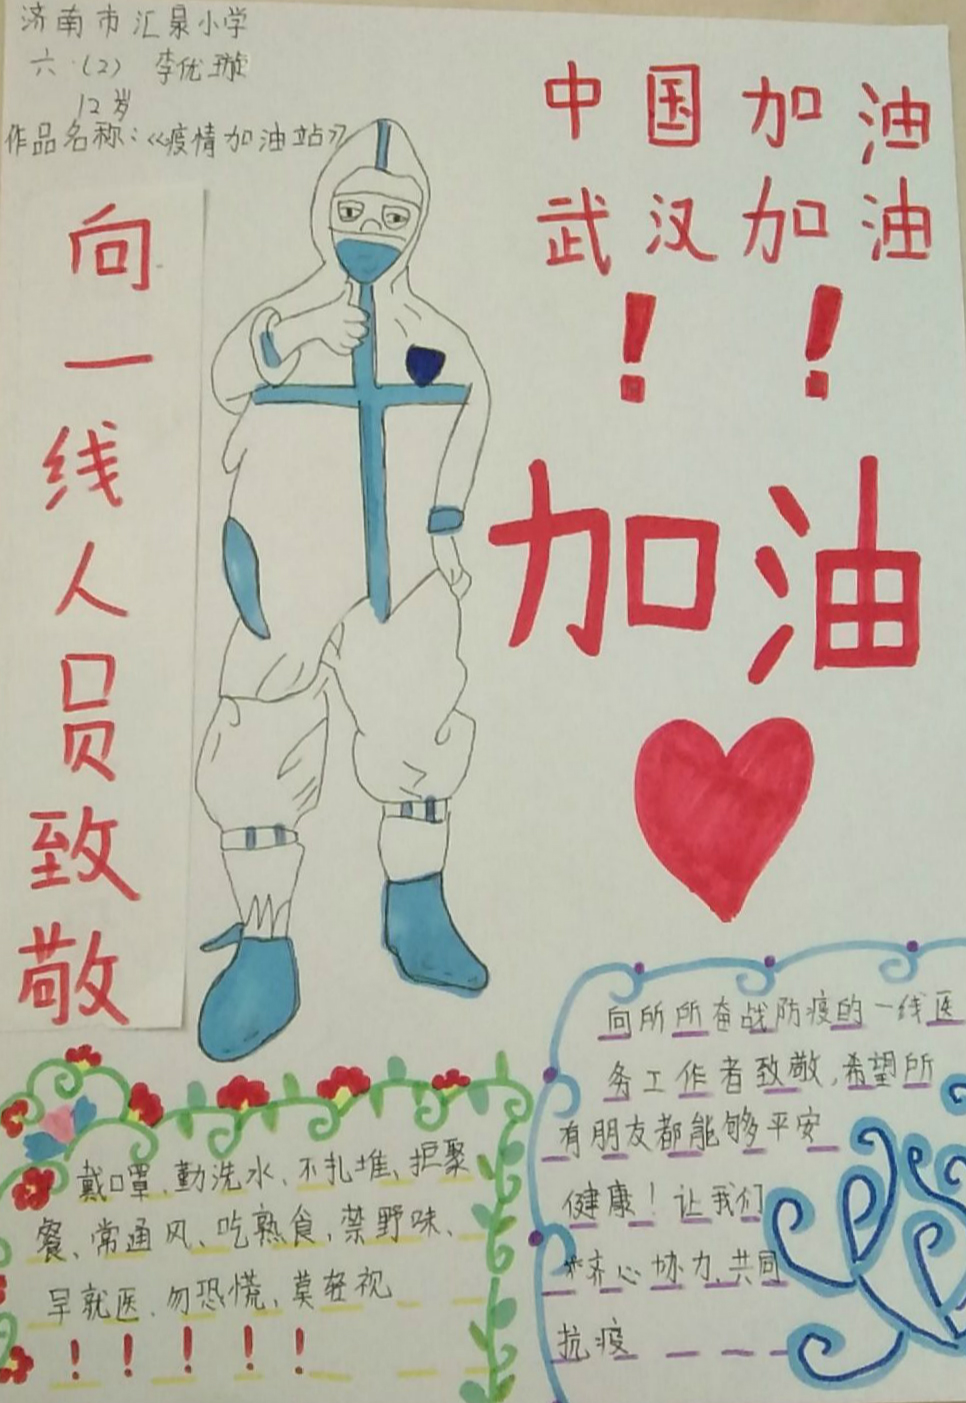 济南市汇泉小学
六（2） 李优璇
12岁
作品名称：《疫情加油站》
向一线人员致敬
中国加油
武汉加油
！！
加油
向所所奋战防疫的一线医
务工作者致敬，希望所
有朋友都能够平安
健康！让我们
齐心协力、共同
抗疫
戴口罩、勤洗水、不扎堆、拒聚
餐、常通风、吃熟食、禁野味、
早就医、勿恐慌、莫轻视
！！！！！